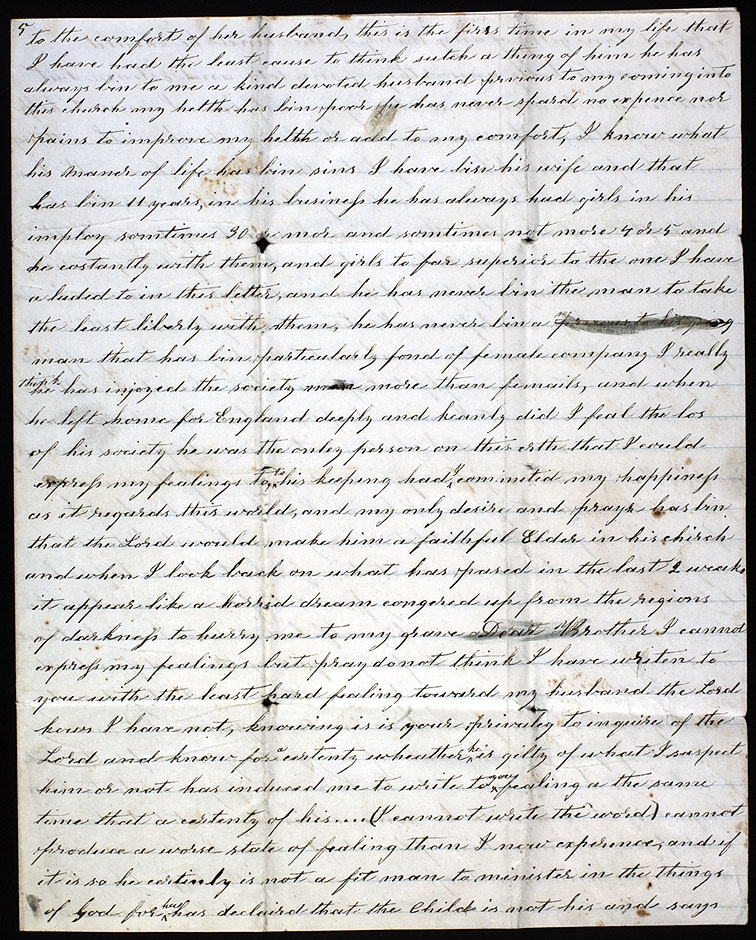 5
to the comfort of her husband, this is the first time in my life that
I have had the least cause to think sutch a thing of him he has
always bin to me a kind devoted husband privious to my coming into
this church my helth has bin poor he has never spard no expence nor
pains to improve my helth or add to my comfort, I know what
his maner of life has bin sins I have bin his wife and that
has bin 11 years, in his business he has always had girls in his
imploy somtimes 30 or mor and somtimes not more 4 or 5 and
he costantly with them, and girls to far superior to the one I have
a luded to in this letter, and he has never bin the man to take
the least liberty with them, he has never bin a
man that has bin particularly fond of female company I really
think he has injoyed the society more than femails, and when
he left home for England deeply and keanly did I feal the los
of his society he was the onley person on this erth that I could
express my fealings to, to his keeping had I commited my happiness
as it regards this world, and my only desire and prayr has bin
that the Lord would make him a faithful Elder in his chirch
and when I look back on what has pased in the last 2 weaks
it appear like a horrid dream congered up from the regions
of darkness to hurry me to my grave Dear Brother I cannot
express my fealings but pray do not think I have writen to
you with the least hard fealing toward my husband the Lord
kows I have not, knowing is is your privaleg to inquire of the
Lord and know for a certenty wheather he is gilty of what I suspect
him or not has induced me to write to you fealing a the same
time that a certenty of his .... (I cannot write the word) cannot
produce a worse state of fealing than I now experence, and if
it is so he certinly is not a fit man to minister in the things
of God for has has declaird that the Child is not his and says